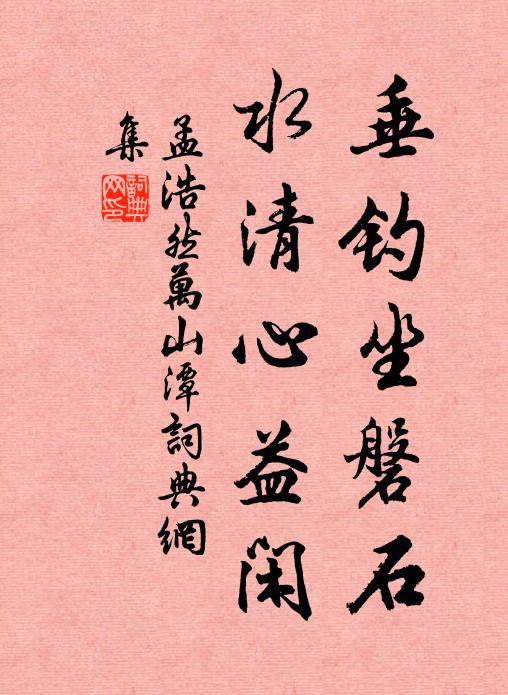 垂钓坐磐石
水清心益闲
孟浩然萬山潭詞典網
集
詞典網印